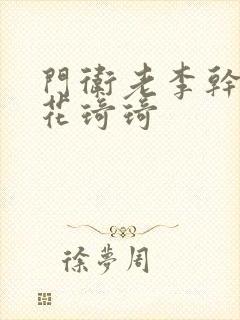 門衛老李幹
花琦琦
徐夢周